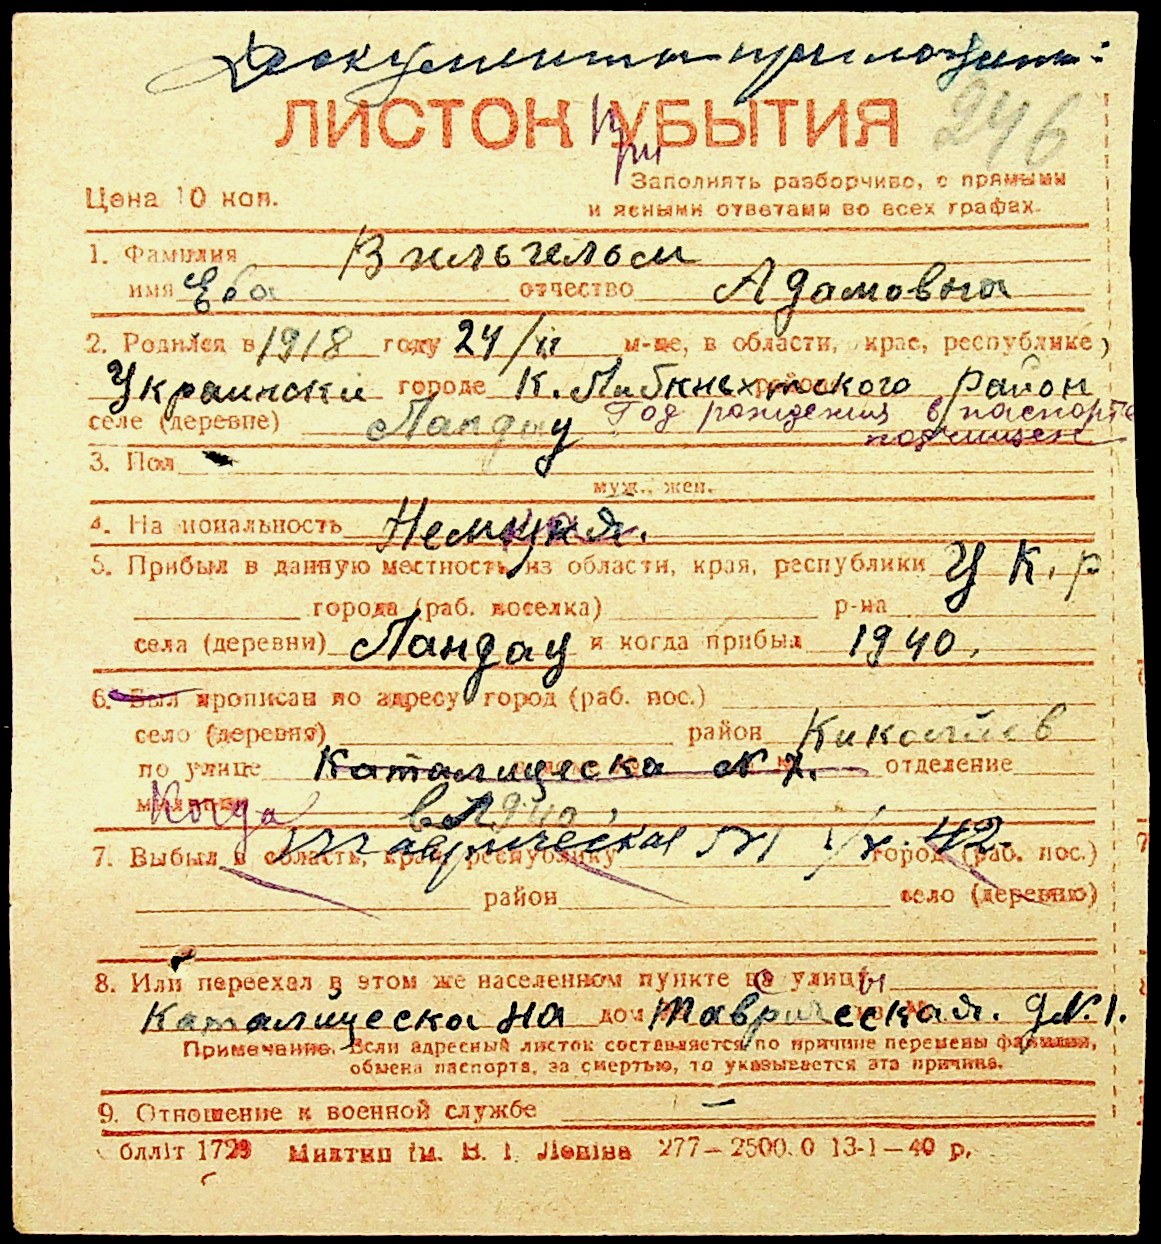 Документы приложены:
ЛИСТОК УБЫТИЯ
При
246
Цена 10 коп.
Заполнять разборчиво, с прямыми
и ясными ответами во всех графах.
1. Фамилия Вильгельм
имя Ева отчество Адамовна
2. Родился в 1918 году 24/II м-це, в области, крае, республике)
Украински городе К. Либкнехтского район
селе (деревне) Ландау Год рождения в паспорте
подчищен
3. Пол
муж., жен.
4. Национальность Немецкая.
5. Прибыл в данную местность из области, края, республики УК. р
города (раб. поселка) р-на
села (деревни) Ландау и когда прибыл 1940.
6. Был прописан по адресу город (раб. пос.)
село (деревня) район Николаев
по улице Каталическа № 7. отделение
Когда в 1940.
Таврическая №1 42.
7. Выбыл в область, край, республику город (раб. пос.)
район село (деревню)
8. Или переехал в этом же населенном пункте с улицы
Каталическа на дом Таврическая. д N.1.
Примечание. Если адресный листок составляется по причине перемены фамилии,
обмена паспорта, за смертью, то указывается эта причина.
9. Отношение к военной службе —
облліт 1729 Миктип ім. В. І. Леніна 277—2500.0 13-1—40 р.